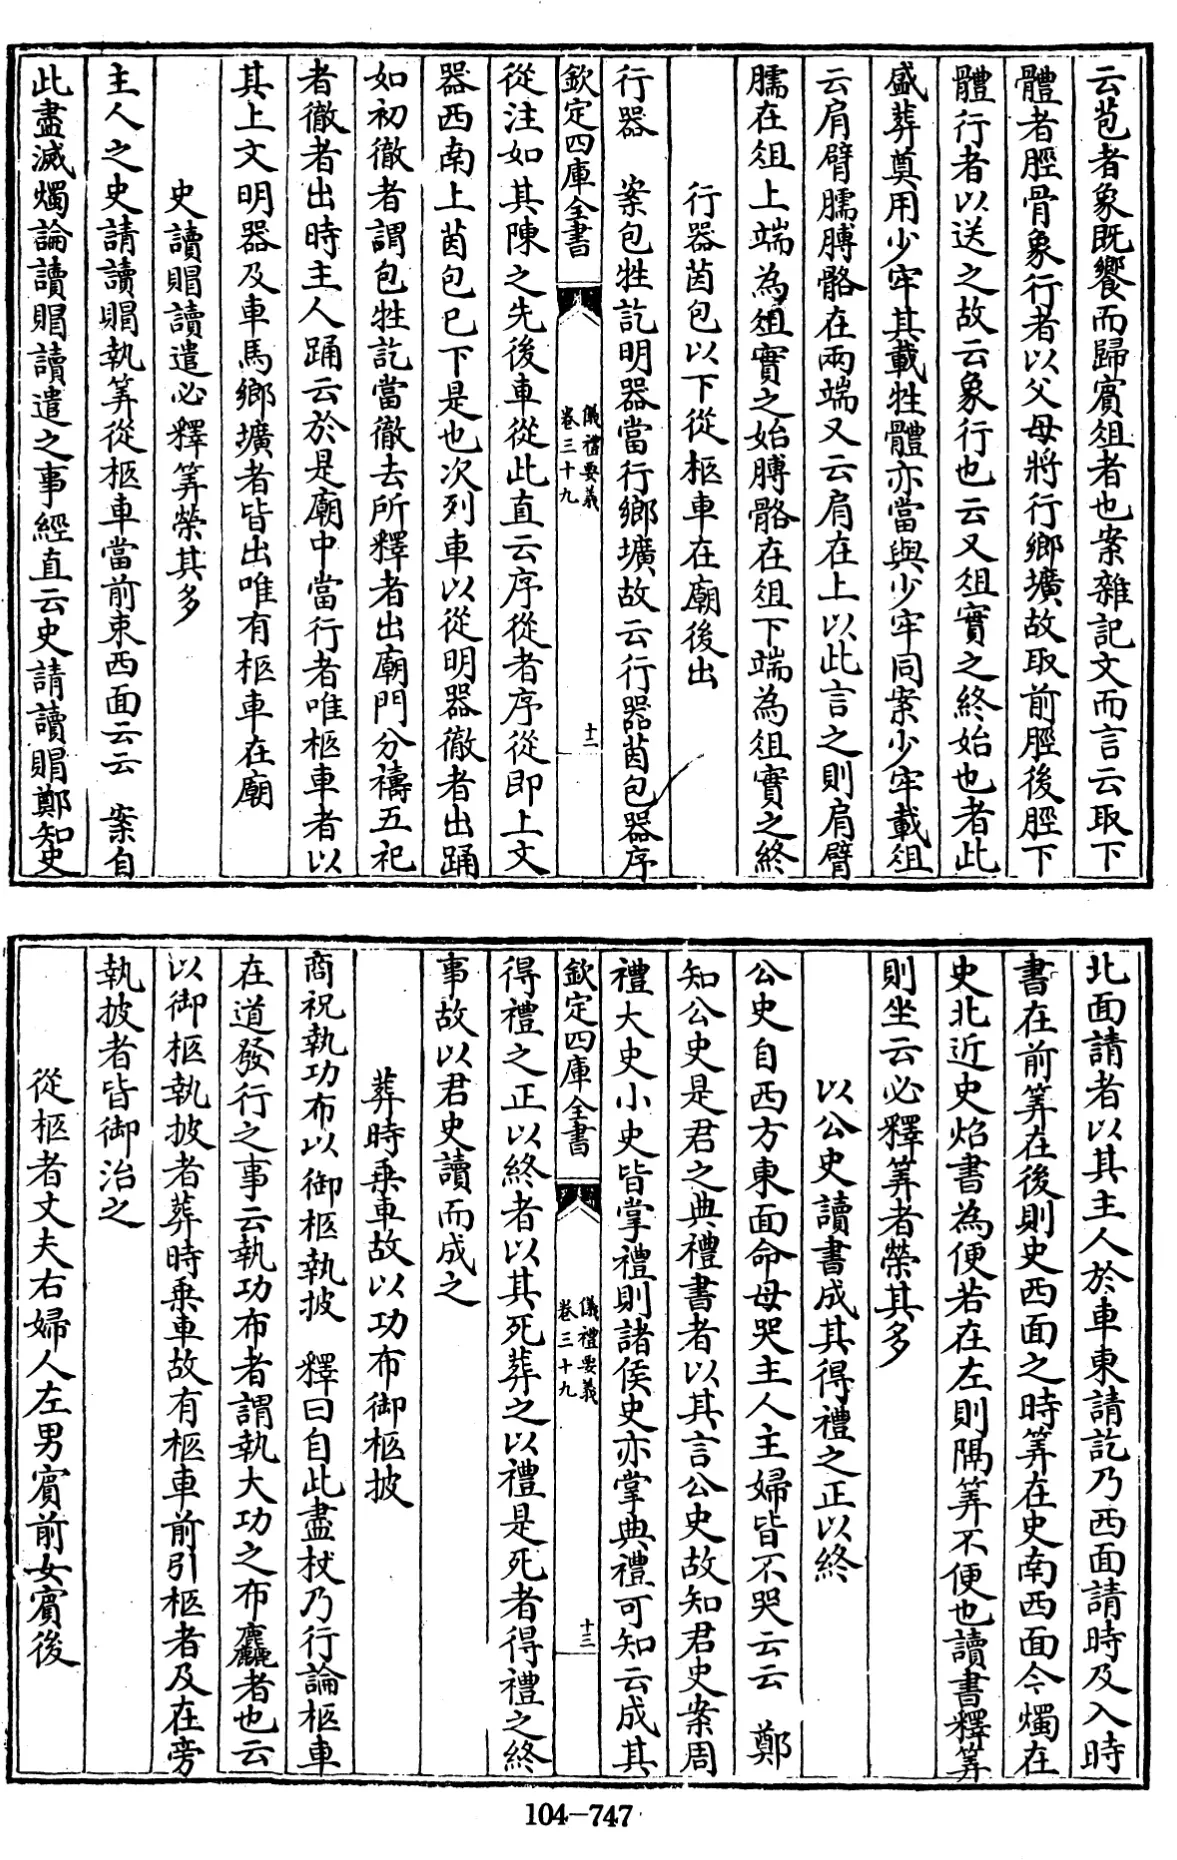 云苞者象既饗而歸賓俎者也案雜記文而言云取下
體者脛骨象行者以父母將行鄉壙故取前脛後脛下
體行者以送之故云象行也云又俎實之終始也者此
盛葬奠用少牢其載牲體亦當與少牢同案少牢載俎
云肩臂臑膊骼在兩端又云肩在上以此言之則肩臂
臑在俎上端為俎實之始膊骼在俎下端為俎實之終
行器茵包以下從柩車在廟後出
行器　案包牲訖明器當行鄉壙故云行器茵包器序
欽定四庫全書
儀禮要義
卷三十九
十二
從注如其陳之先後車從此直云序從者序從即上文
器西南上茵包已下是也次列車以從明器徹者出踊
如初徹者謂包牲訖當徹去所釋者出廟門分禱五祀
者徹者出時主人踊云於是廟中當行者唯柩車者以
其上文明器及車馬鄉壙者皆出唯有柩車在廟
史讀賵讀遣必釋筭榮其多
主人之史請讀賵執筭從柩車當前束西面云云　案自
此盡滅燭論讀賵讀遣之事經直云史請讀賵鄭知史
北面請者以其主人於車東請訖乃西面請時及入時
書在前筭在後則史西面之時筭在史南西面令燭在
史北近史炤書為便若在左則隔筭不便也讀書釋筭
則坐云必釋筭者榮其多
以公史讀書成其得禮之正以終
公史自西方東面命毋哭主人主婦皆不哭云云　鄭
知公史是君之典禮書者以其言公史故知君史案周
禮大史小史皆掌禮則諸侯史亦掌典禮可知云成其
欽定四庫全書
儀禮要義
卷三十九
十三
得禮之正以終者以其死葬之以禮是死者得禮之終
事故以君史讀而成之
葬時乗車故以功布御柩披
商祝執功布以御柩執披　釋曰自此盡杖乃行論柩車
在道發行之事云執功布者謂執大功之布麤者也云
以御柩執披者葬時乗車故有柩車前引柩者及在旁
執披者皆御治之
從柩者丈夫右婦人左男賓前女賓後
104-747